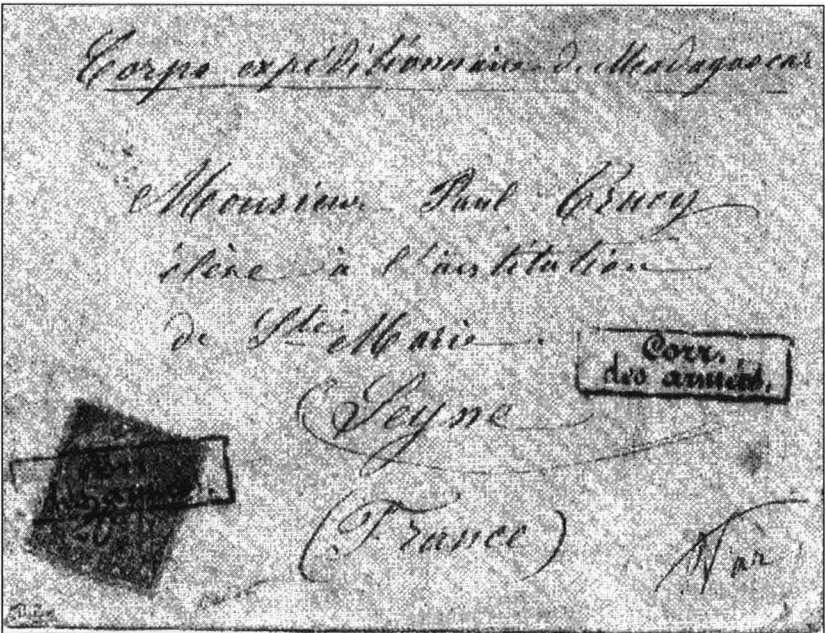 Corps expéditionnaire de Madagascar
Monsieur Paul Crucy
élève à l'institution
de Ste Marie
Corr.
des armées.
Seyne
(France)
Var